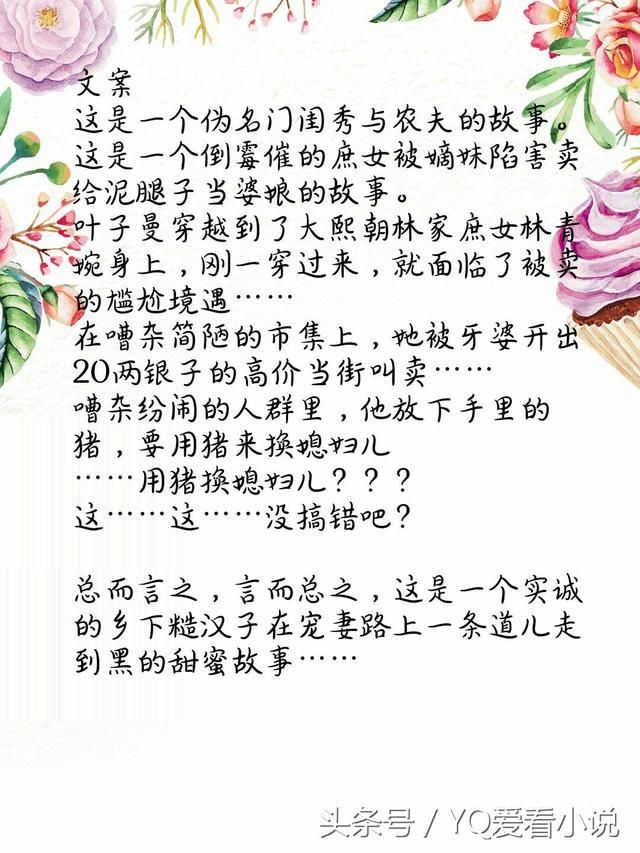 文案
这是一个伪名门闺秀与农夫的故事。
这是一个倒霉催的庶女被嫡妹陷害卖
给泥腿子当婆娘的故事。
叶子曼穿越到了大熙朝林家庶女林青
婉身上，刚一穿过来，就面临了被卖
的尴尬境遇……
在嘈杂简陋的市集上，她被牙婆开出
20两银子的高价当街叫卖……
嘈杂纷闹的人群里，他放下手里的
猪，要用猪来换媳妇儿
……用猪换媳妇儿？？？
这……这……没搞错吧？
总而言之，言而总之，这是一个实诚
的乡下糙汉子在宠妻路上一条道儿走
到黑的甜蜜故事……
头条号 / YQ爱看小说